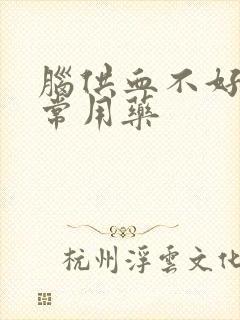 腦供血不好
常用藥
杭州浮雲文化